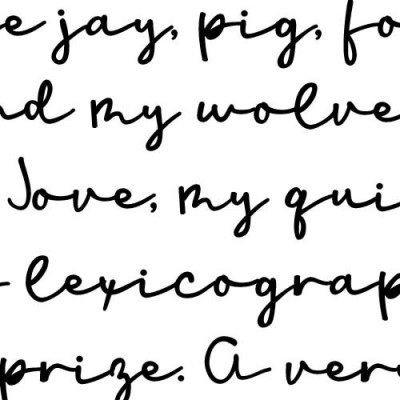 e jay, pig, fo
nd my wolve
Jove, my qui
lexicograp
prize. A ver